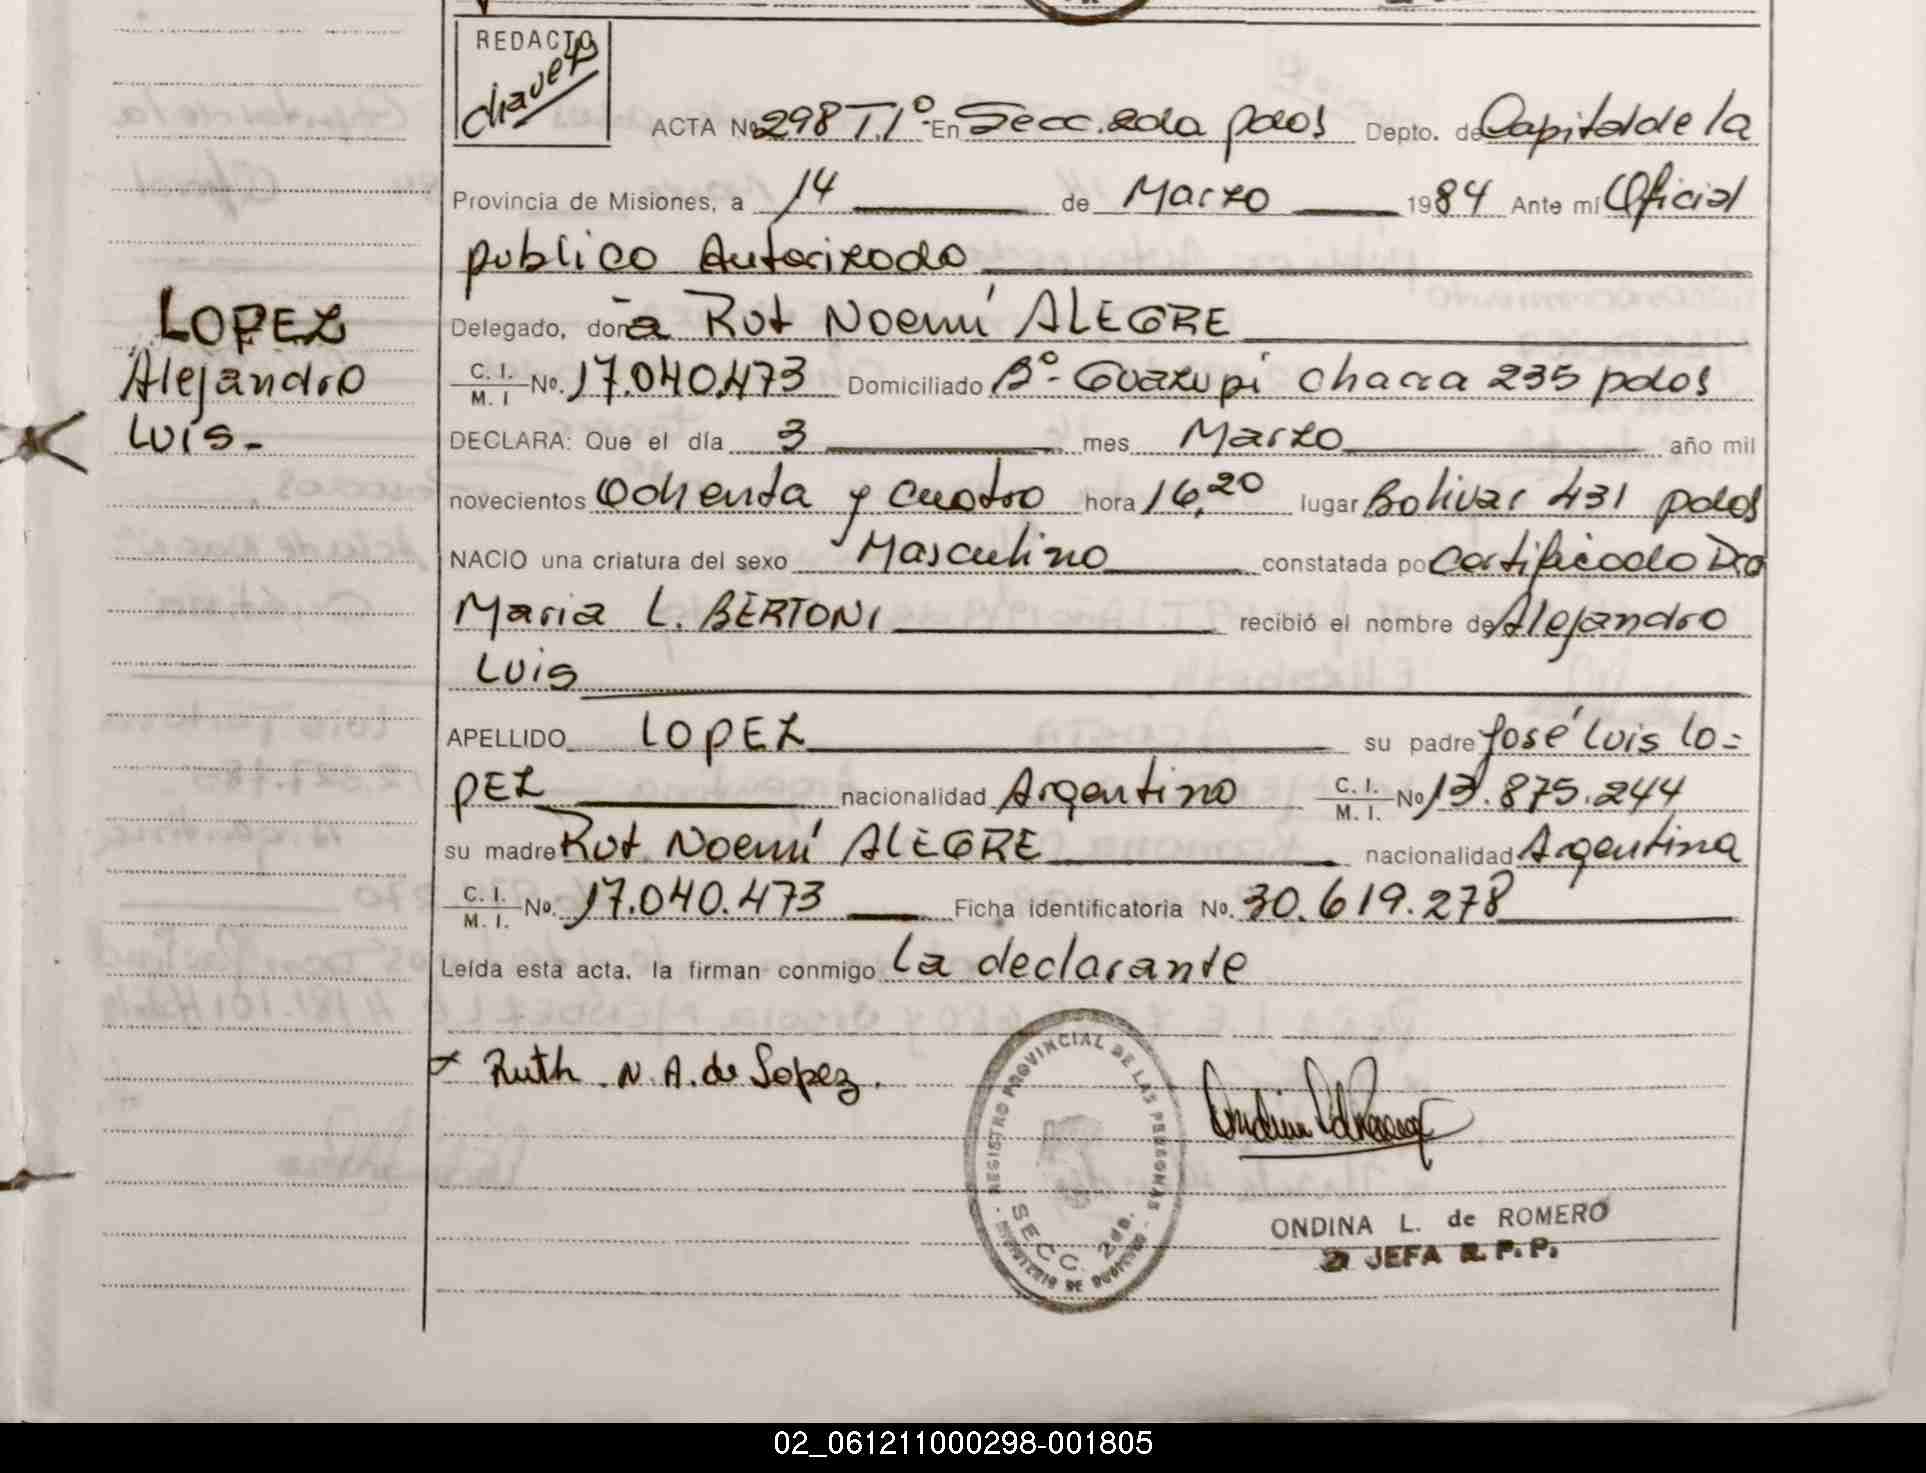 REDACTO
chavez
ACTA No 298 T.1º- En Secc. 2da pdas Depto. de Capital de la
Provincia de Misiones, a 14 de Marzo 1984 Ante mí Oficial
publico Autorizado
LOPEZ
Alejandro
Luis-
Delegado, doña Rut Noemí ALEGRE
C. I. M. I No. 17.040.473 Domiciliado Bº- Guazupi chacra 235 pdas
DECLARA: Que el día 3 mes Marzo año mil
novecientos Ochenta y cuatro hora 16,20 lugar Bolivar 431 pdas
NACIO una criatura del sexo Masculino constatada po Certificado Dra
Maria L. BERTONI recibió el nombre de Alejandro
Luis
APELLIDO LOPEZ su padre José Luis LO=
PEZ nacionalidad Argentino C. I. M. I. No 13.875.244
su madre Rut Noemí ALEGRE nacionalidad Argentina
C. I. M. I. No. 17.040.473 Ficha identificatoria No. 30.619.278
Leída esta acta, la firman conmigo la declarante
Ruth N. A. de Lopez.
REGISTRO PROVINCIAL DE LAS PERSONAS
SECC. 2da.
MINISTERIO DE GOBIERNO
ONDINA L. de ROMERO
JEFA R. P. P.
02_061211000298-001805